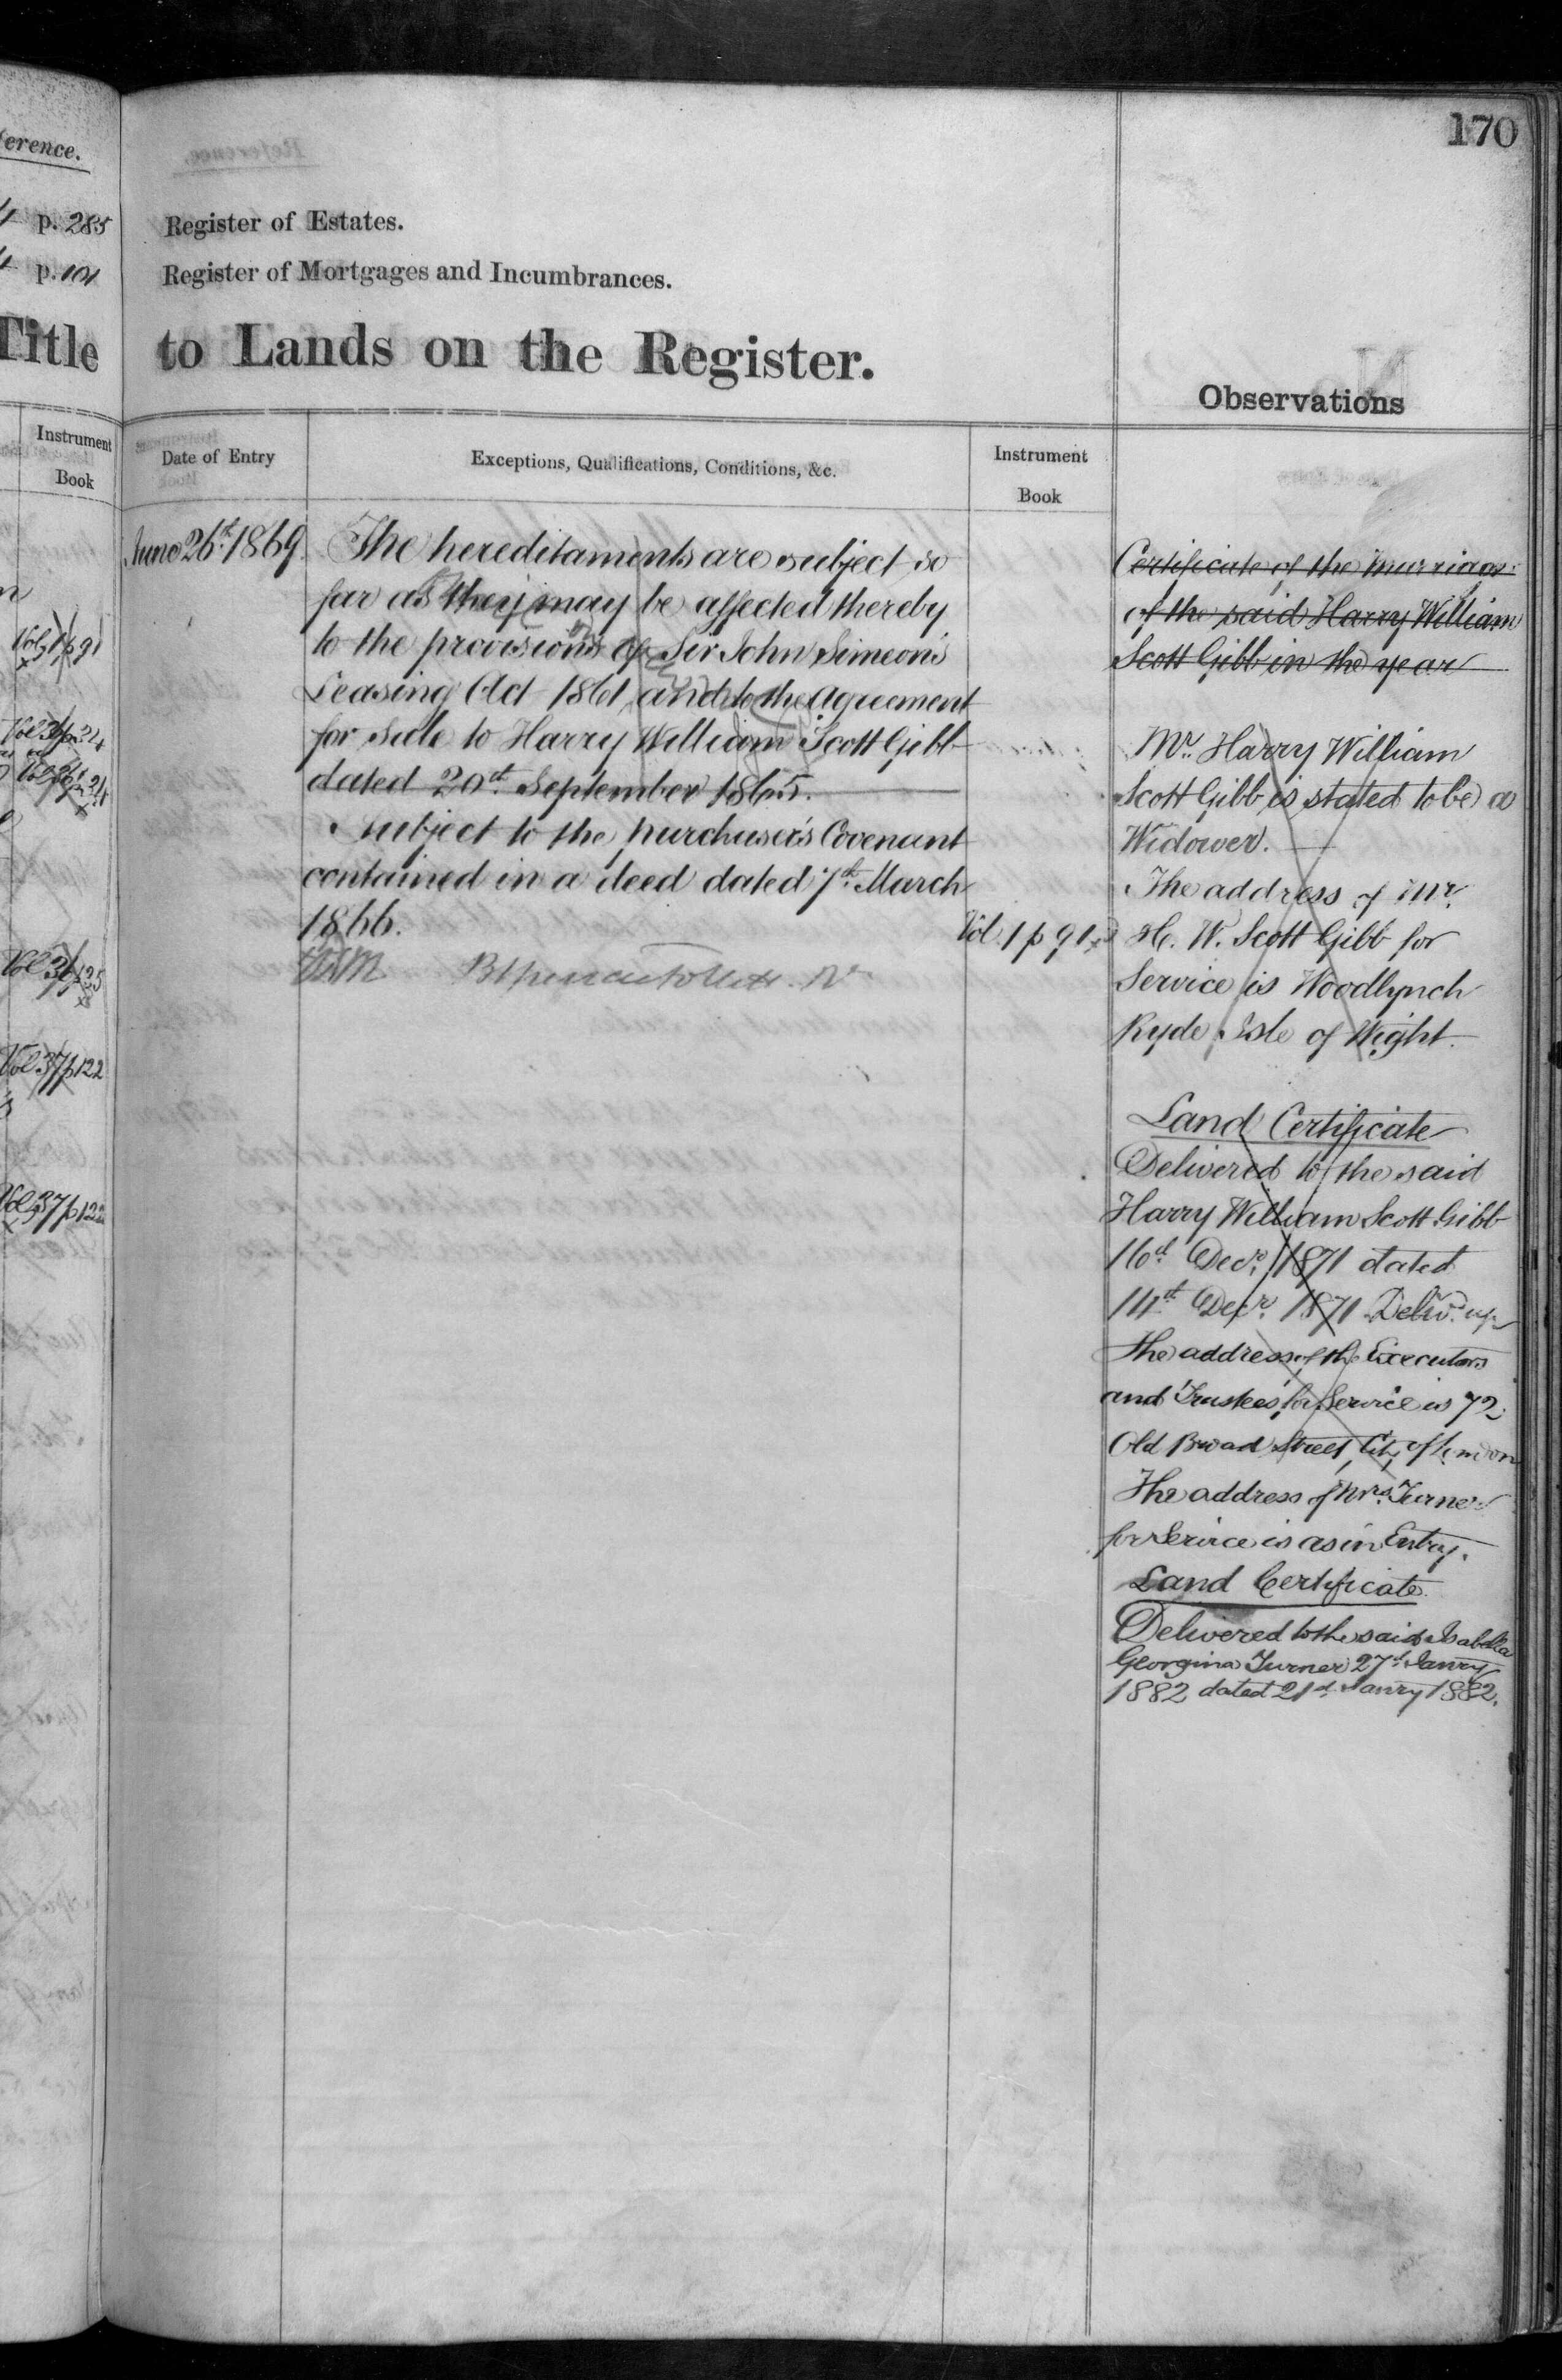 170
erence.
p. 285
p. 101
Title
Instrument
Book
Vol 1 p 91
Vol 37 p 122
Vol 37 p 122
Register of Estates.
Register of Mortgages and Incumbrances.
to Lands on the Register.
Observations
Date of Entry
Exceptions, Qualifications, Conditions, &c.
Instrument
Book
June 26th 1869.
The hereditaments are subject so
far as they may be affected thereby
to the provisions of Sir John Simeon's
Leasing Act 1861, and to the Agreement
for Sale to Harry William Scott Gibb
dated 20th September 1865.
Subject to the purchaser's Covenant
contained in a deed dated 7th March
1866.
Vol 1 p 91
Certificate of the marriage
of the said Harry William
Scott Gibb in the year
Mr. Harry William
Scott Gibb is stated to be a
Widower.
The address of Mr.
H. W. Scott Gibb for
Service is Woodlynch
Ryde, Isle of Wight.
Land Certificate
Delivered to the said
Harry William Scott Gibb
16th Decr. 1871 dated
14th Decr. 1871 Delivd. up
The address of the Executors
and Trustees for Service is 72
Old Broad Street, City of London
The address of Mrs. Turner
for Service is as in Entry.
Land Certificate.
Delivered to the said Isabella
Georgina Turner 27th Janry
1882 dated 21st Janry 1882.